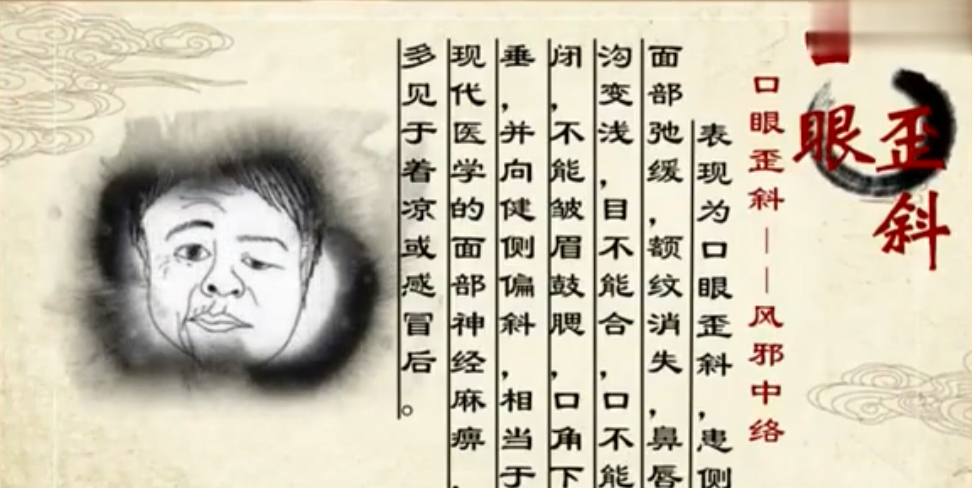 歪斜
眼
口眼歪斜——风邪中络
表现为口眼歪斜，患侧
面部弛缓，额纹消失，鼻唇
沟变浅，目不能合，口不能
闭，不能皱眉鼓腮，口角下
垂，并向健侧偏斜，相当于
现代医学的面部神经麻痹，
多见于着凉或感冒后。